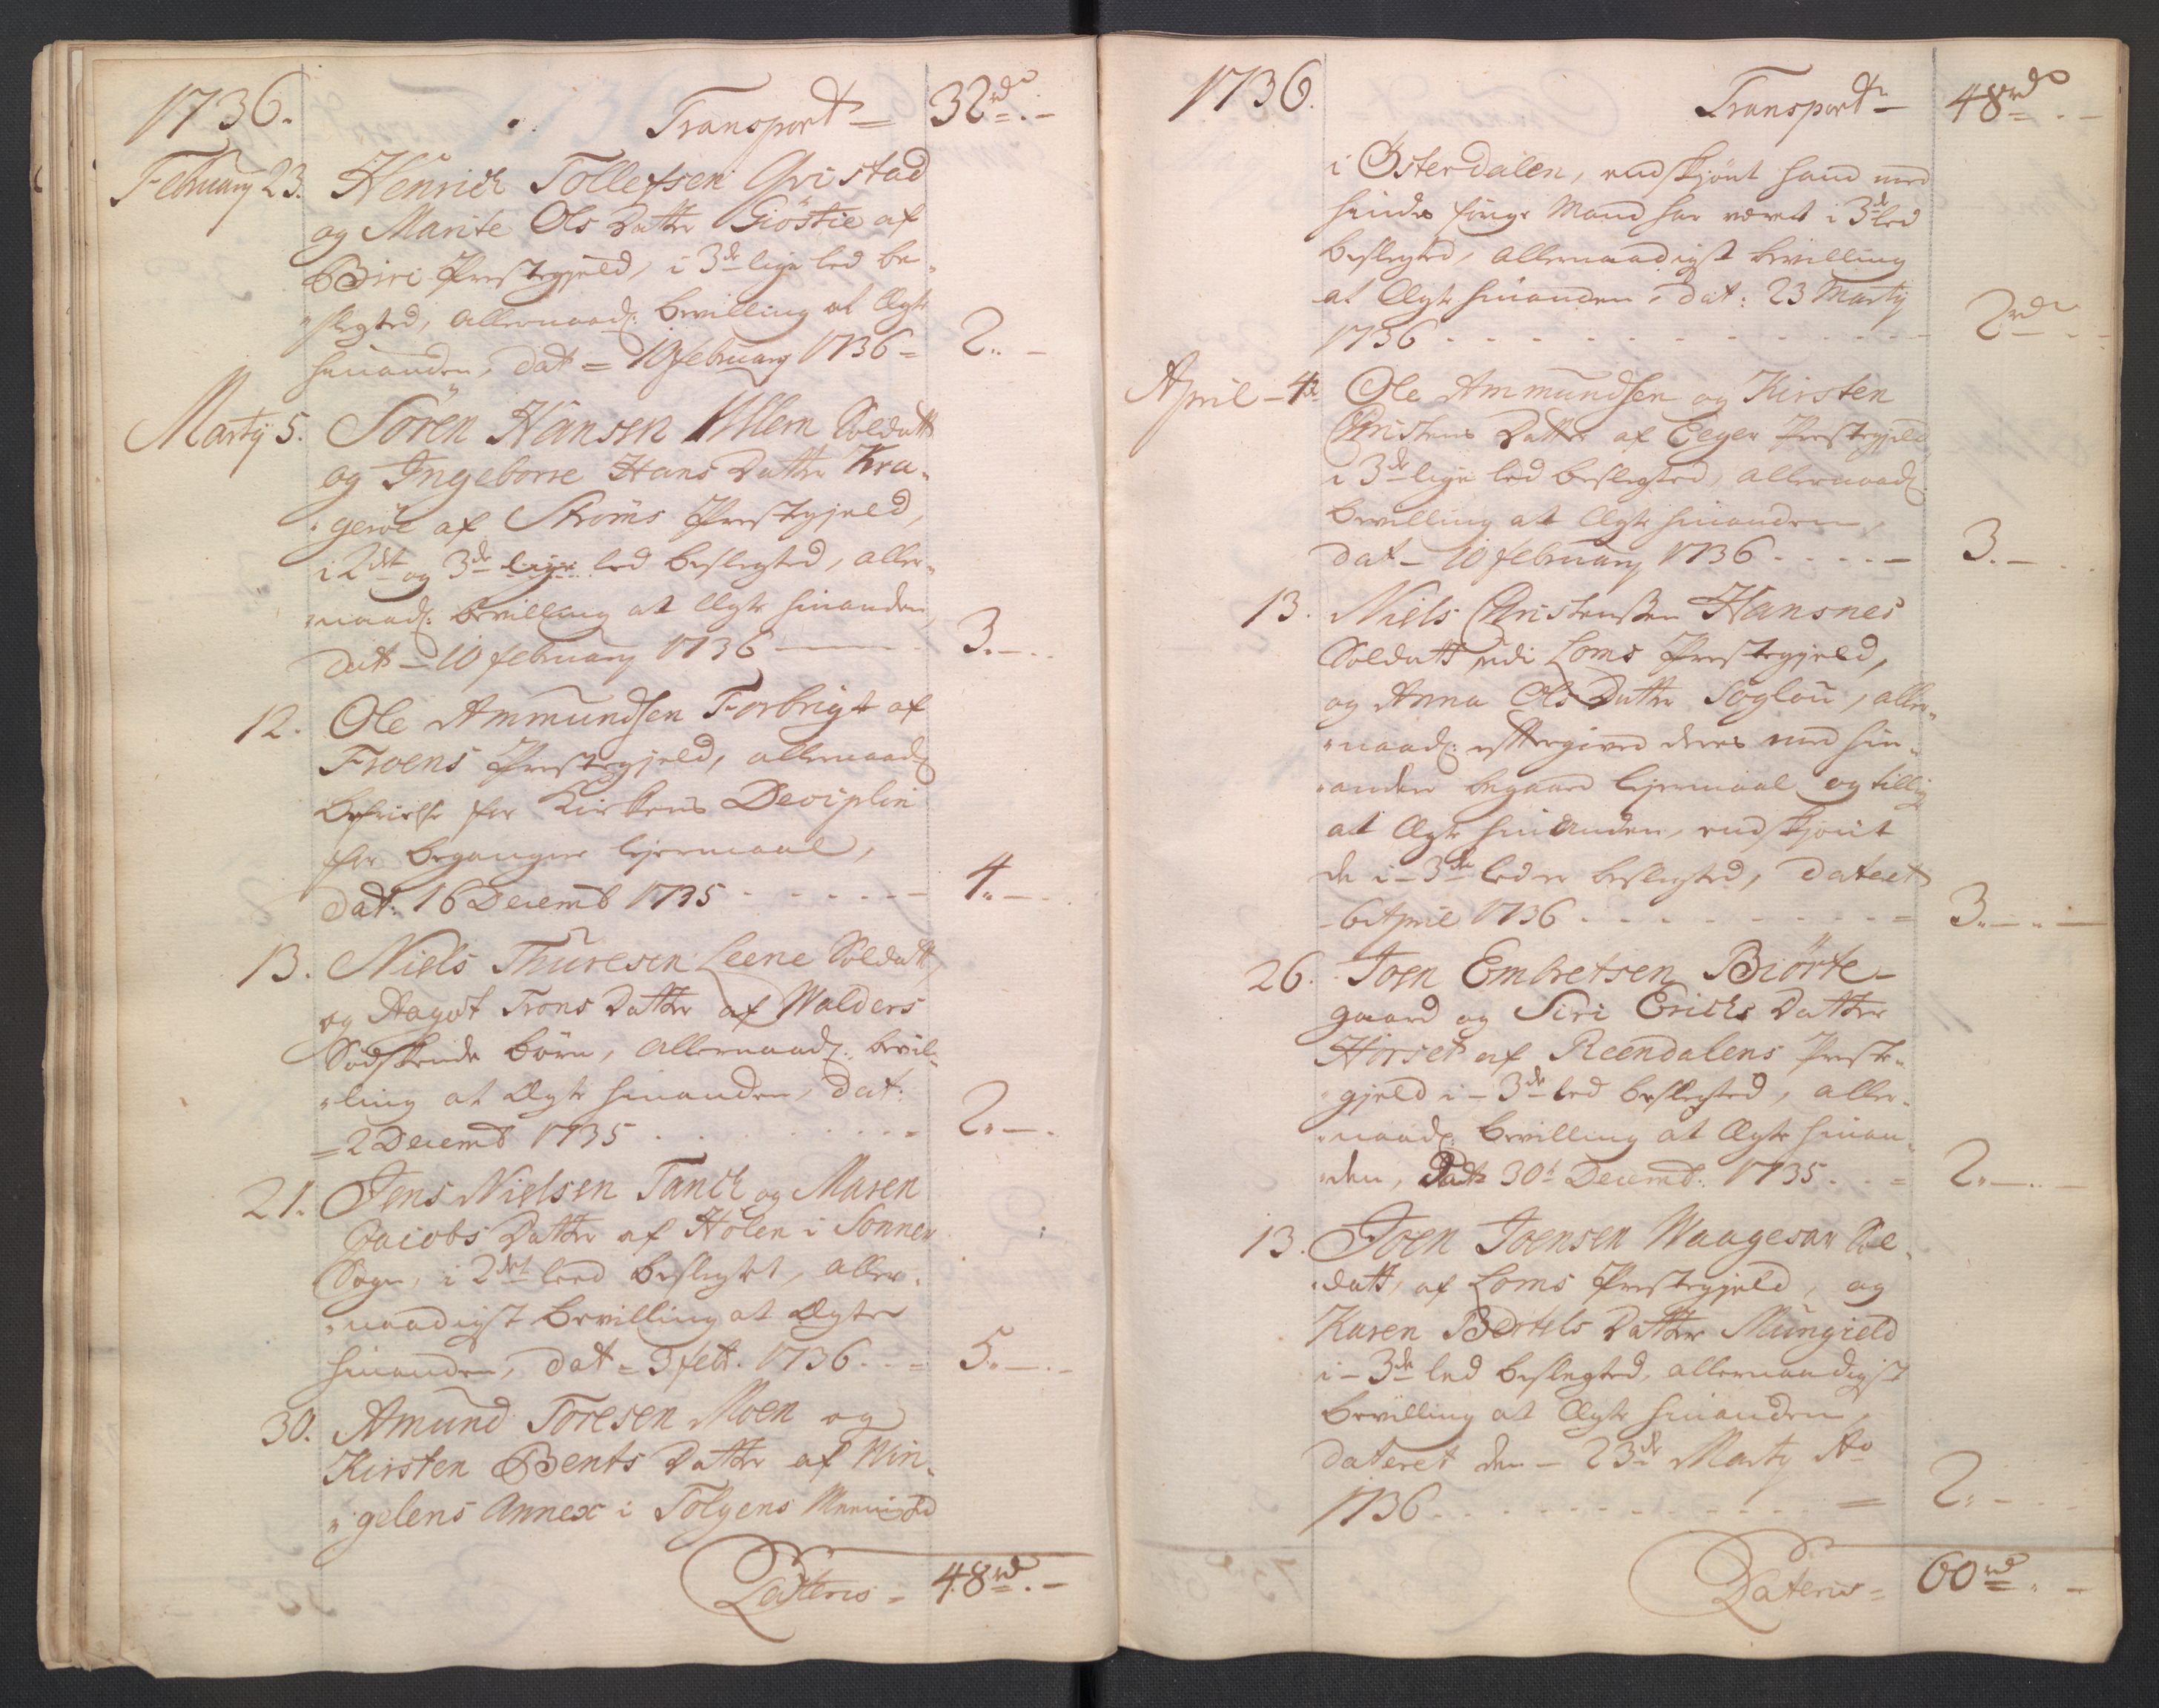 1736.
Transport = 32 rd. -
February 23. Henrich Tollefsen Qvistad
og Marite Ols Datter Giöstie af
Biri Prestegjeld, i 3de lige led be-
slegted, allernaad: bevilling at Ægte
hinanden, dat = 10 february 1736 = 2. -
Marty 5. Sören Hansen Ullern Soldatt
og Ingeborre Hans Datter Kra-
geröe af Ströms Prestegjeld,
i 2det og 3de lige led beslegted, aller-
naad: bevilling at Ægte hinanden,
dat - 10 february 1736 - 3. -
12. Ole Ammundsen Forbrigt af
Froens Prestegjeld, allernaad:
Befrielse for Kirkens Deciplin
for begangne lejermaal,
dat: 16 Decemb 1735 - - - - 4. -
13. Niels Thuresen Leene Soldatt,
og Aagot Trons Datter af Walders
Sødskende børn, allernaad: bevil-
ling at Ægte hinanden, dat:
= 2 Decemb 1735 . . . . 2. -
21. Jens Nielsen Tanch og Maren
Jacobs Datter af Hölen i Sonner
Sogn, i 2det leed beslegtet, aller-
naadigst bevilling at Ægte
hinanden, dat = 3 febr. 1736 . . = 5. -
30. Amund Toresen Moen og
Kirsten Bents Datter af Win-
gelens Annex i Tolgens
Lateris = 48 rd. -
1736.
Transport - 48 rd. -
i Österdalen, endskjönt hand med
hindes forige Mand har været i 3de led
beslegted, allernaadigst bevilling
at Ægte hinanden, dat: 23 Marty
1736 - - - - - - 2 rd. -
April - 4de Ole Ammundsen og Kirsten
Christens Datter af Eeger Prestegjeld
i 3de lige led beslegted, allernaad:
bevilling at Ægte hinanden,
dat - 10 february 1736 - - - 3. -
13. Niels Christensen Hansnes
Soldatt udi Loms Prestegjeld,
og Anna Ols Datter Söglou, aller-
naad: efftergived deres med hin-
anden begaaed lejermaal og tillige
at Ægte hinanden, endskjönt
de i - 3de led er beslegted, dateret
- 6 April 1736 - - - - = 3. -
26. Joen Embretsen Biörte-
gaard og Siri Erichs Datter
Horset af Reendalens Preste-
gjeld i - 3de led beslegted, aller-
naad: bevilling at Ægte hinan-
den, Dat 30t Decemb: 1735 . . = 2. -
13. Joen Joensen Waagesar Sol-
datt, af Loms Prestegjeld, og
Karen Bertels Datter Mungield
i - 3de led beslegted, allernaadigst
bevilling at Ægte hinanden,
dateret den - 23de Marty Ao
1736 - - - - = 2. -
Lateris = 60 rd. -